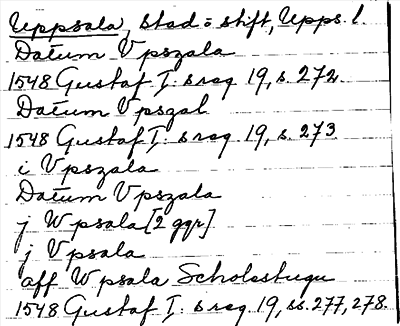 Uppsala, stad o. stift, Upps. l.
Datum Vpszala
1548 Gustaf I: s reg. 19, s. 272.
Datum Vpszal
1548 Gustaf I: s reg. 19, s. 273.
i Vpszala
Datum Vpszala
j Wpsala [2 ggr]
j Vpsala
aff Wpsala Scholestugu
1548 Gustaf I: s reg. 19, ss. 277, 278.